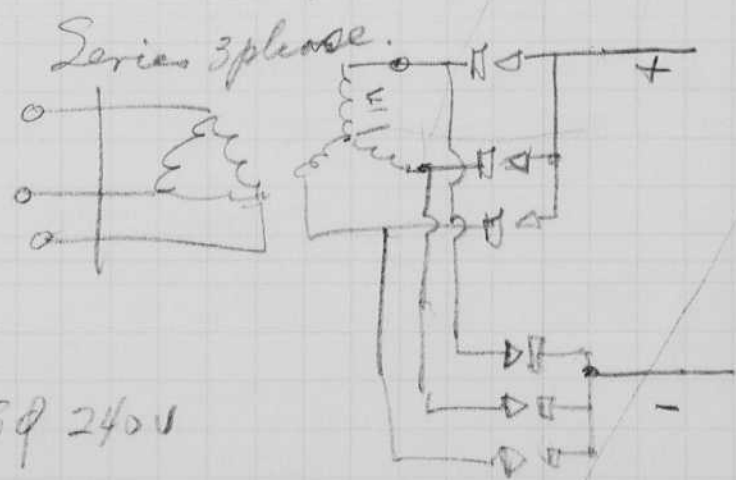 Series 3 phase.
+
E
-
3φ 240V